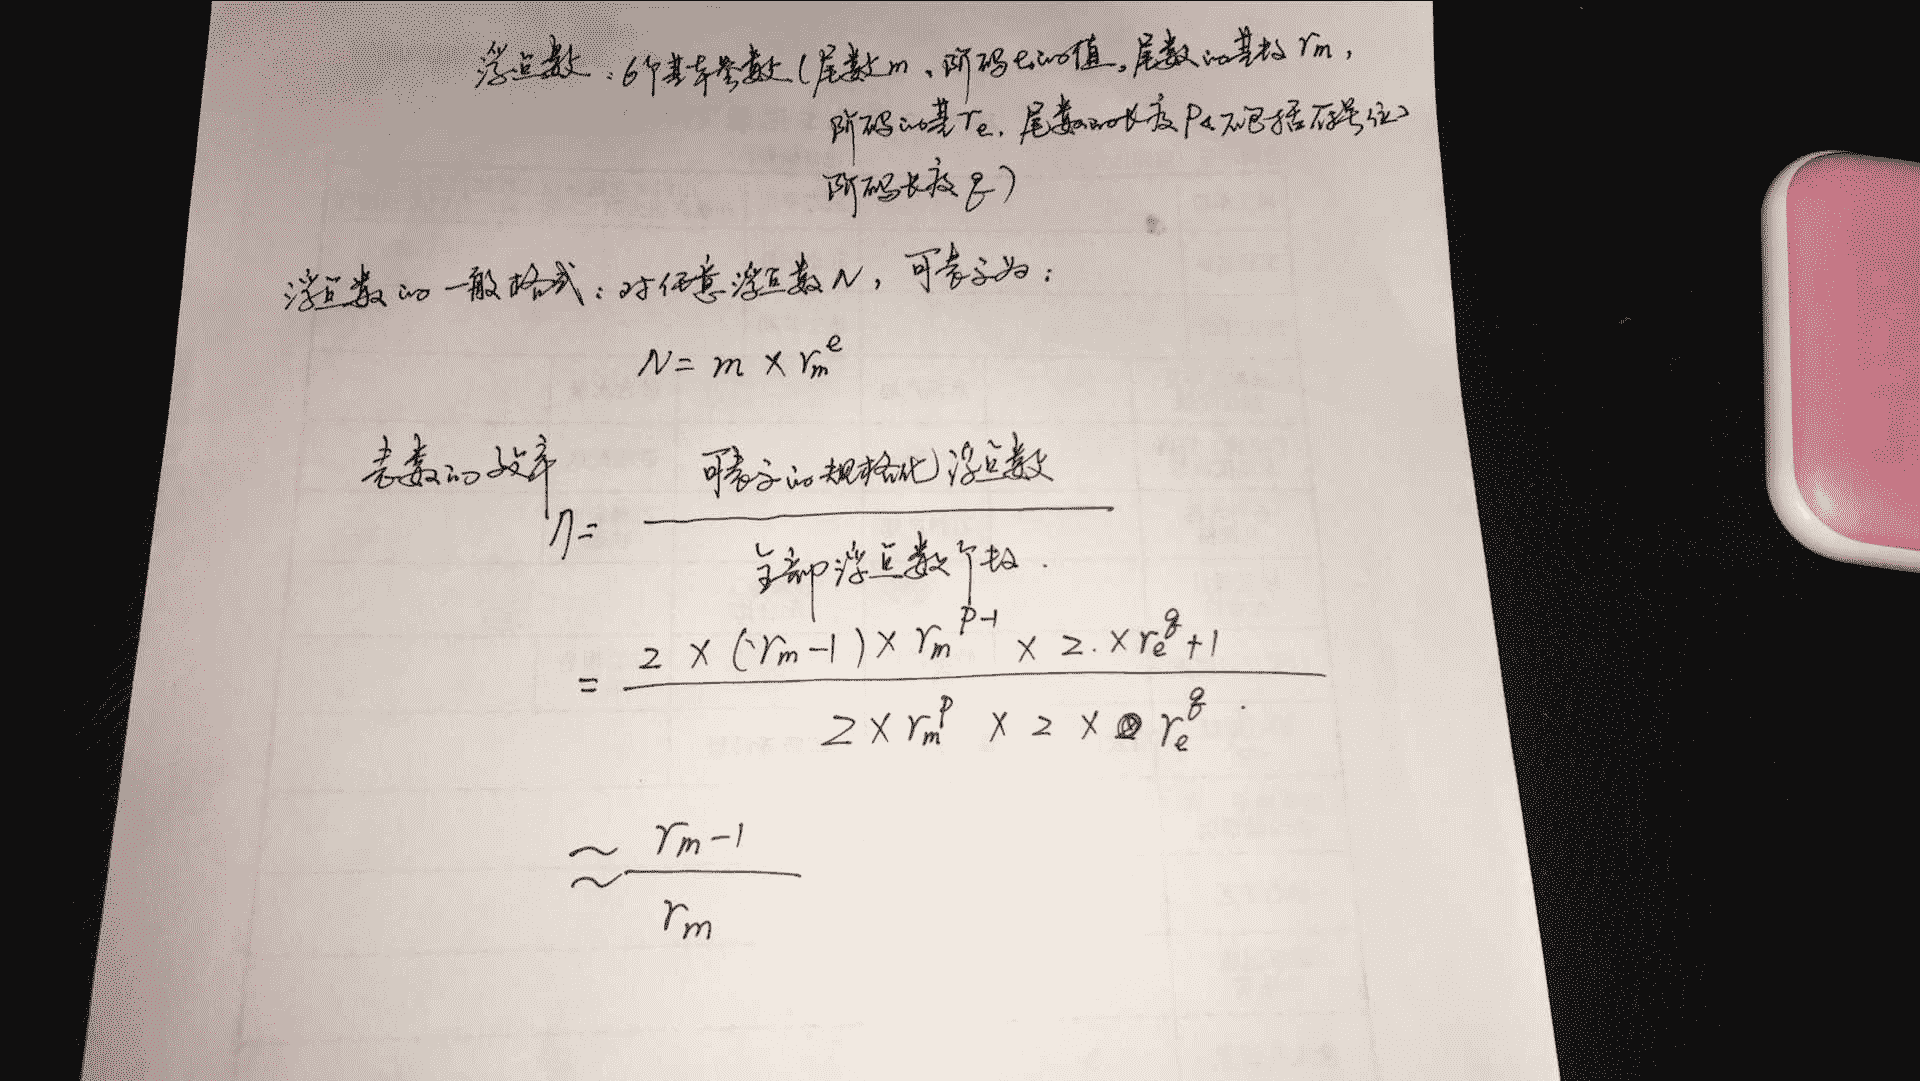 浮点数：6个基本参数(尾数m、阶码e的值，尾数的基数rm，
阶码的基re，尾数的长度P<不包括符号位>
阶码长度q)
浮点数的一般格式：对任意浮点数N，可表示为：
N = m × rm^e
表数的效率
可表示的规格化浮点数
η =
全部浮点数个数.
2 × (rm-1) × rm^(P-1) × 2. × re^q + 1
=
2 × rm^P × 2 × re^q
≈ rm-1
rm